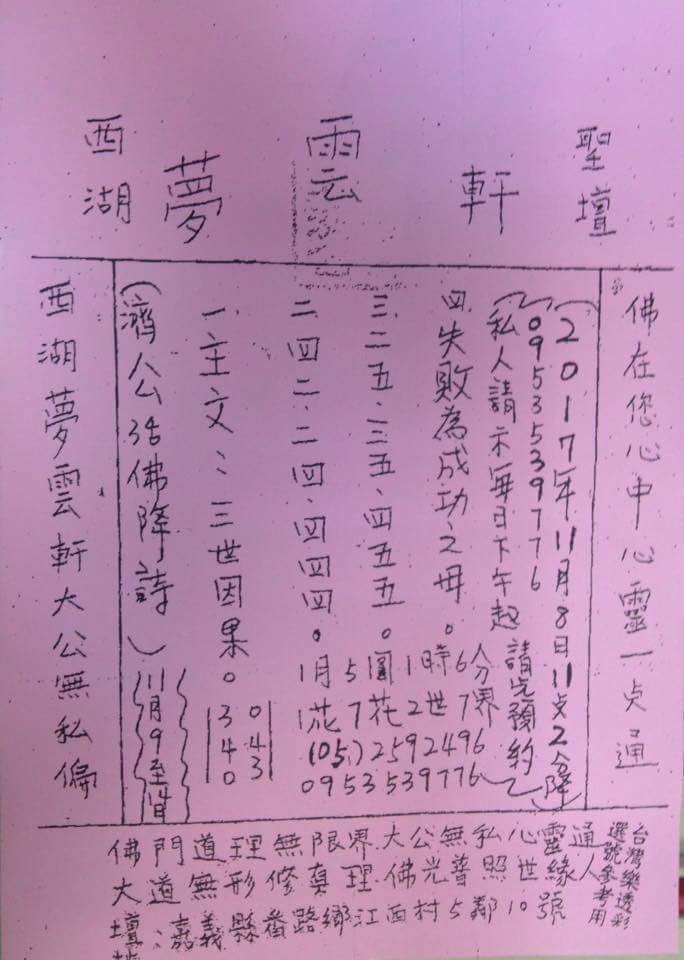 西湖夢雲軒聖壇
西湖夢雲軒大公無私偏
(濟公活佛降詩)
11月9至
一.主文:三世因果。
340
043
二.四二.二四.四四四。
三.二五.三五.四五五。
四.失敗為成功之母。
1月5圓1時6分
1花7花2世7界
(05)2592496
0953539776
(私人請示每日下午起請先預約)
0953539776
(2017年11月8日11点2分降)
佛在您心中心靈一点通
佛門道理無限界大公無私心靈通
大道無形修真理.佛光普照世緣人
壇址:嘉義縣番路鄉江西村5鄰10號
台灣樂透彩
選號參考用